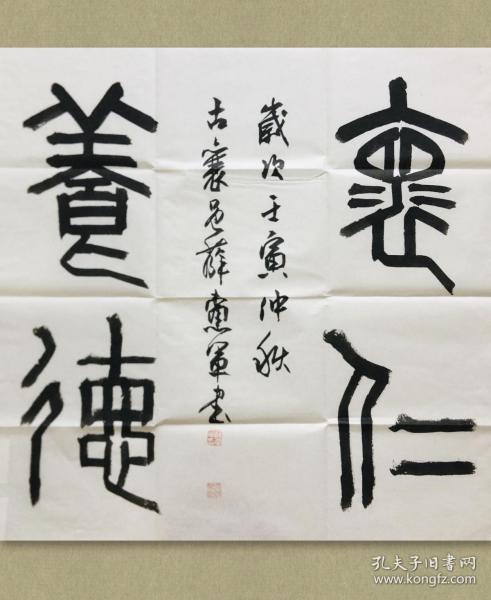 裹仁
養德
歲次壬寅仲秋
古襄邑薛憲軍書
孔夫子旧书网
www.kongfz.com